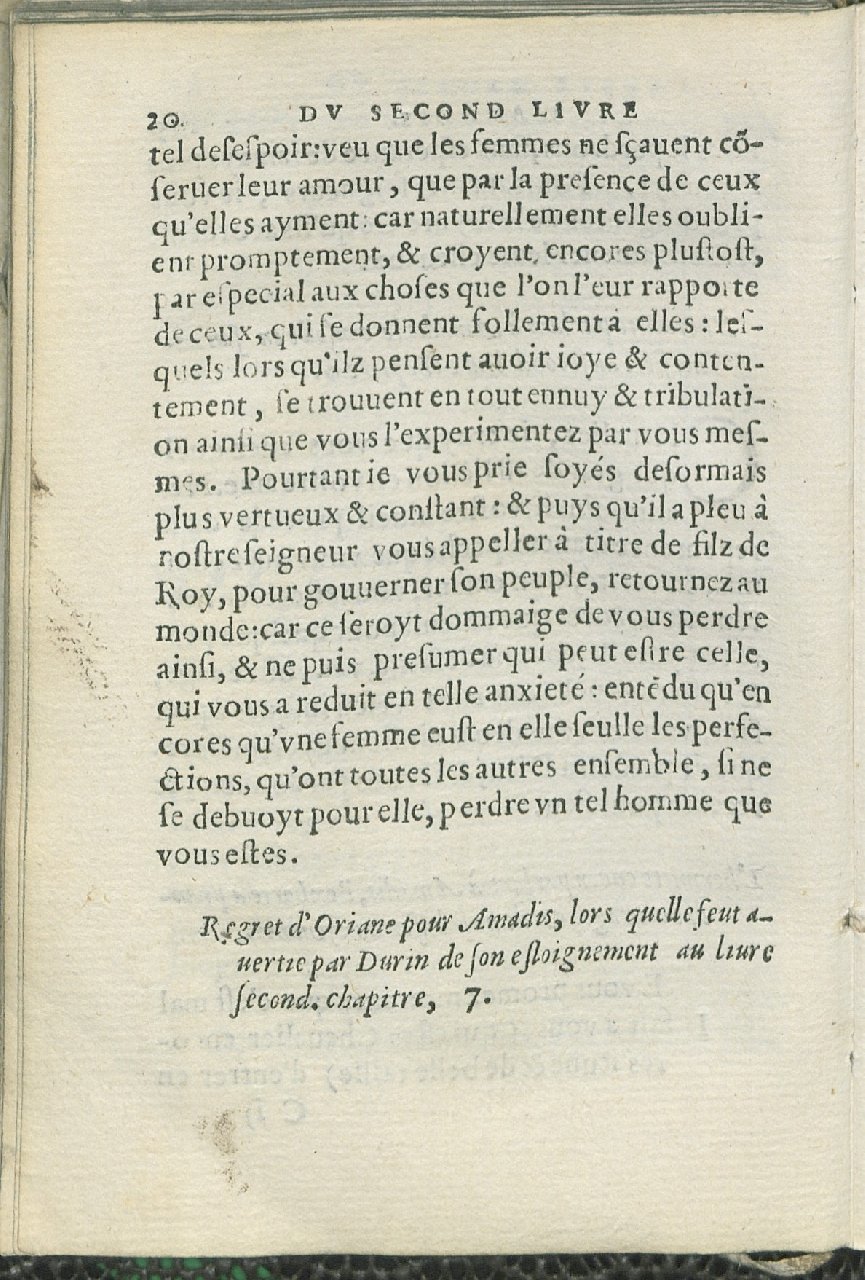 20. DV SECOND LIVRE
tel deſeſpoir:veu que les femmes ne ſçauent cõ-
ſeruer leur amour, que par la preſence de ceux
qu'elles ayment: car naturellement elles oubli-
ent promptement, & croyent encores pluſtoſt,
par eſpecial aux choſes que l'on l'eur rapporte
de ceux, qui ſe donnent follement à elles : leſ-
quels lors qu'ilz penſent auoir ioye & conten-
tement, ſe trouuent en tout ennuy & tribulati-
on ainſi que vous l'experimentez par vous meſ-
mes. Pourtant ie vous prie ſoyés deſormais
plus vertueux & conſtant : & puys qu'il a pleu à
noſtre ſeigneur vous appeller à titre de filz de
Roy, pour gouuerner ſon peuple, retournez au
monde:car ce ſeroyt dommaige de vous perdre
ainſi, & ne puis preſumer qui peut eſtre celle,
qui vous a reduit en telle anxieté : entẽdu qu'en
cores qu'vne femme euſt en elle ſeulle les perfe-
ctions, qu'ont toutes les autres enſemble, ſi ne
ſe debuoyt pour elle, perdre vn tel homme que
vous eſtes.
Regret d'Oriane pour Amadis, lors quelle feut a-
uertie par Durin de ſon eſloignement au liure
ſecond. chapitre, 7.